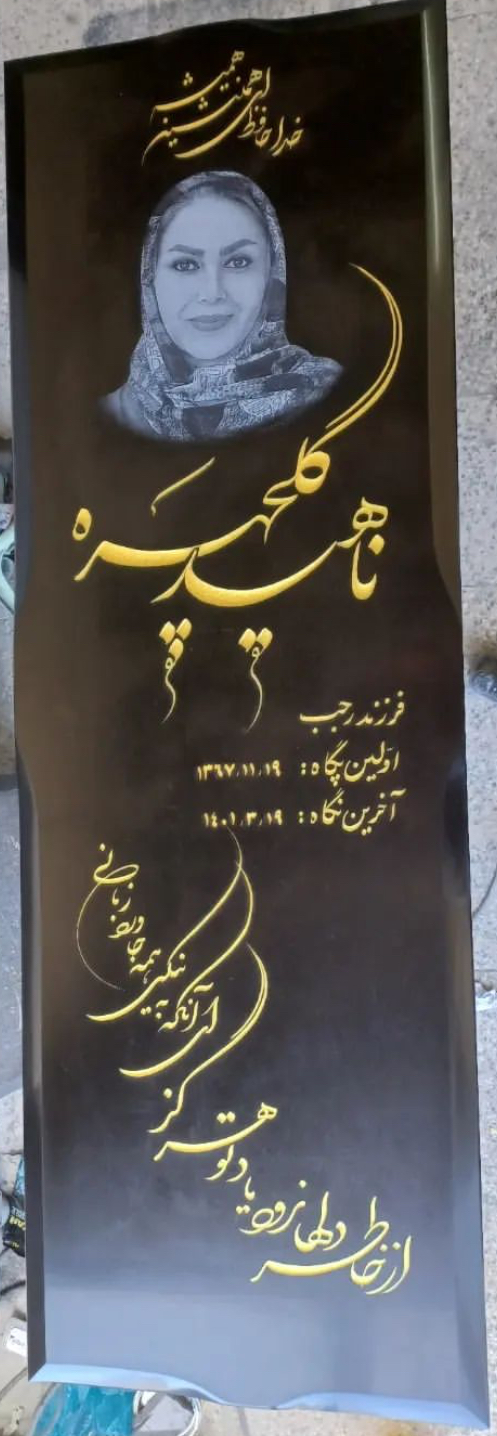 خداحافظ ای همنشین همیشه
ناهید گلچهره
فرزند رجب
اوّلین پگاه: ۱۳۶۷.۱۱.۱۹
آخرین نگاه: ۱۴۰۱.۳.۱۹
ای آنکه به نیکی همه جا ورد زبانی
هرگز
یاد تو
از خاطر دلها نرود